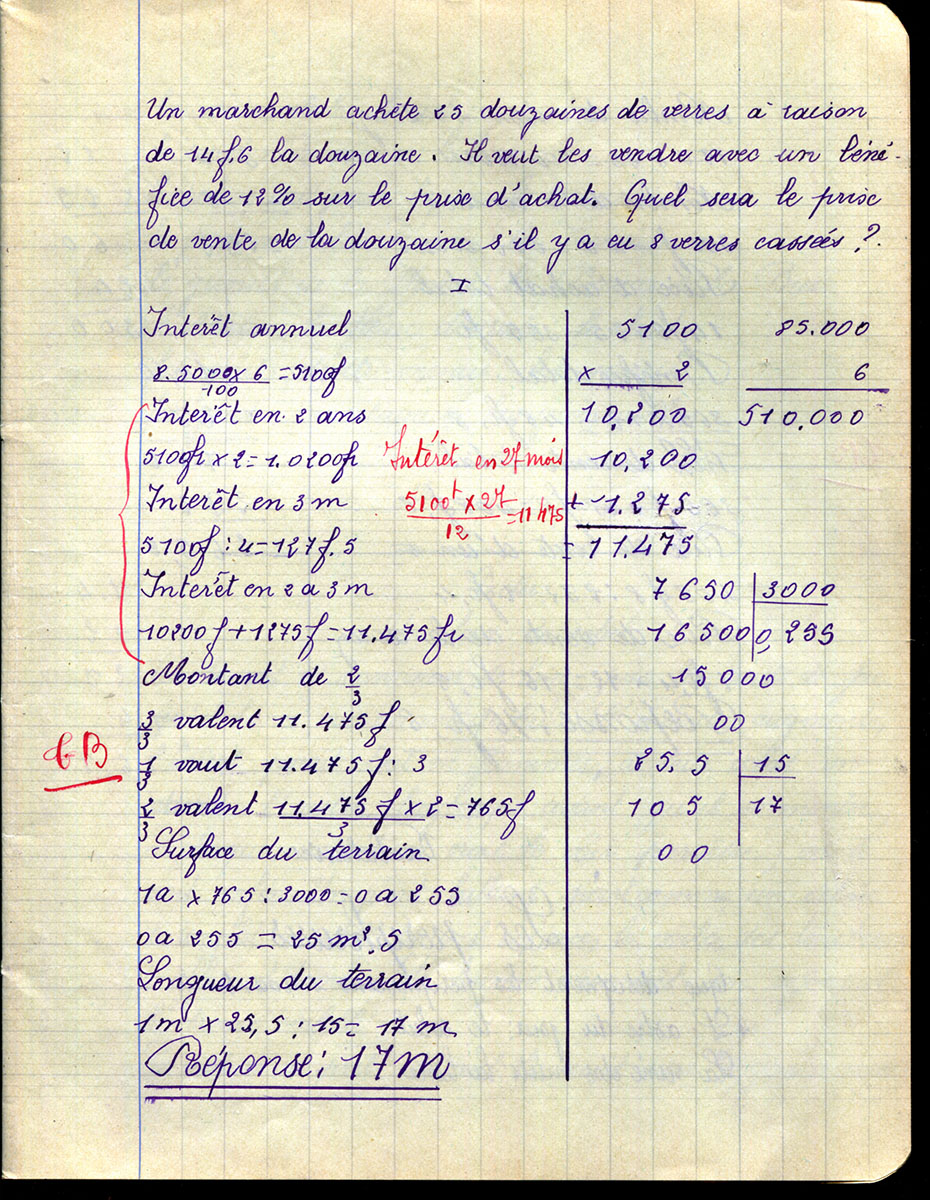 Un marchand achète 25 douzaines de verres à raison
de 14f,6 la douzaine. Il veut les vendre avec un béné-
fice de 12% sur le prise d'achat. Quel sera le prise
de vente de la douzaine s'il y a eu 8 verres cassées ?.
I
Interêt annuel
8.5000 x 6 = 5100f
100
Interêt en 2 ans
5100fr x 2 = 1.0200fr
Interêt en 3 m
5100f : 4 = 127f,5
Interet en 2 a 3 m
10200f + 1275f = 11.475fr
Montant de 2/3
3/3 valent 11.475f
1/3 vaut 11.475f : 3
2/3 valent 11.475f x 2 = 765f
3
Surface du terrain
1a x 765 : 3000 = 0a 255
0a 255 = 25 m²,5
Longueur du terrain
1m x 25,5 : 15 = 17 m
Réponse : 17m
Intérêt en 27 mois
5100f x 27 = 11475
12
TB
5100
x 2
10,200
10,200
+ 1.275
= 11.475
85.000
6
510,000
7650 | 3000
16500 0,255
15000
00
25,5 | 15
105 17
00